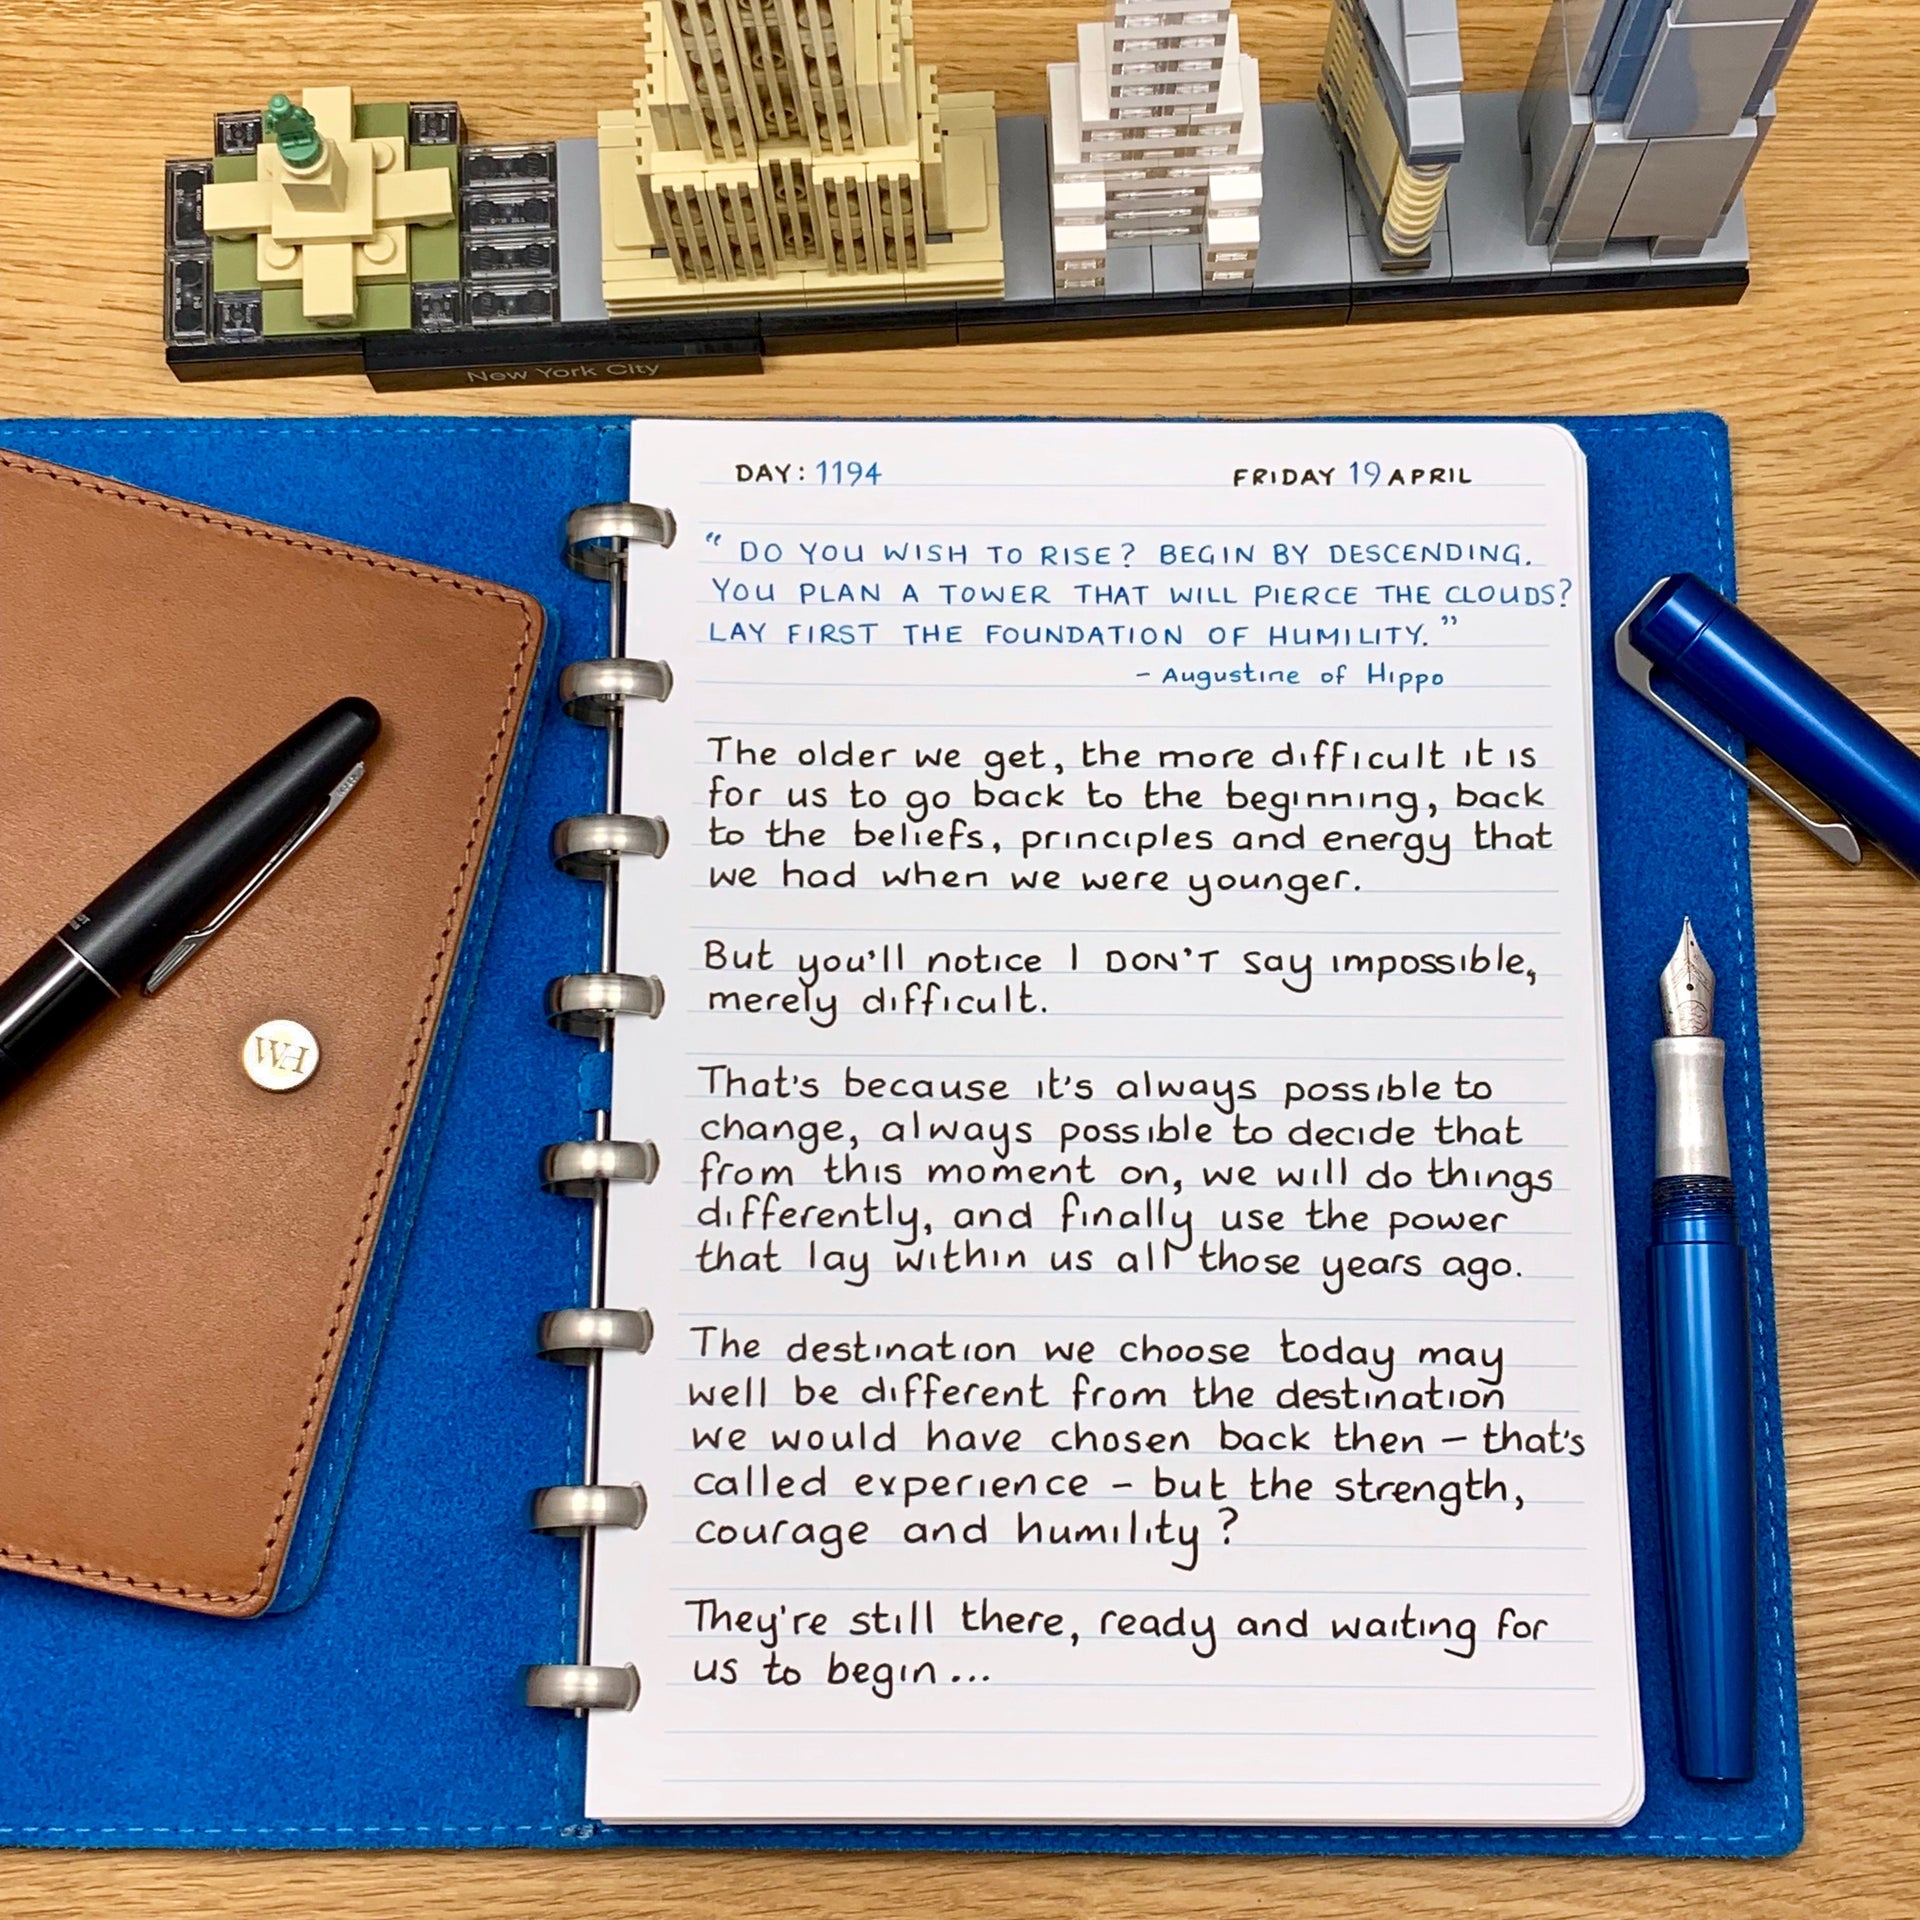 New York City
DAY: 1194
FRIDAY 19 APRIL
" DO YOU WISH TO RISE? BEGIN BY DESCENDING.
YOU PLAN A TOWER THAT WILL PIERCE THE CLOUDS?
LAY FIRST THE FOUNDATION OF HUMILITY. "
- Augustine of Hippo
The older we get, the more difficult it is
for us to go back to the beginning, back
to the beliefs, principles and energy that
we had when we were younger.
But you'll notice I DON'T say impossible,
merely difficult.
That's because it's always possible to
change, always possible to decide that
from this moment on, we will do things
differently, and finally use the power
that lay within us all those years ago.
The destination we choose today may
well be different from the destination
we would have chosen back then – that's
called experience – but the strength,
courage and humility?
They're still there, ready and waiting for
us to begin...
WH